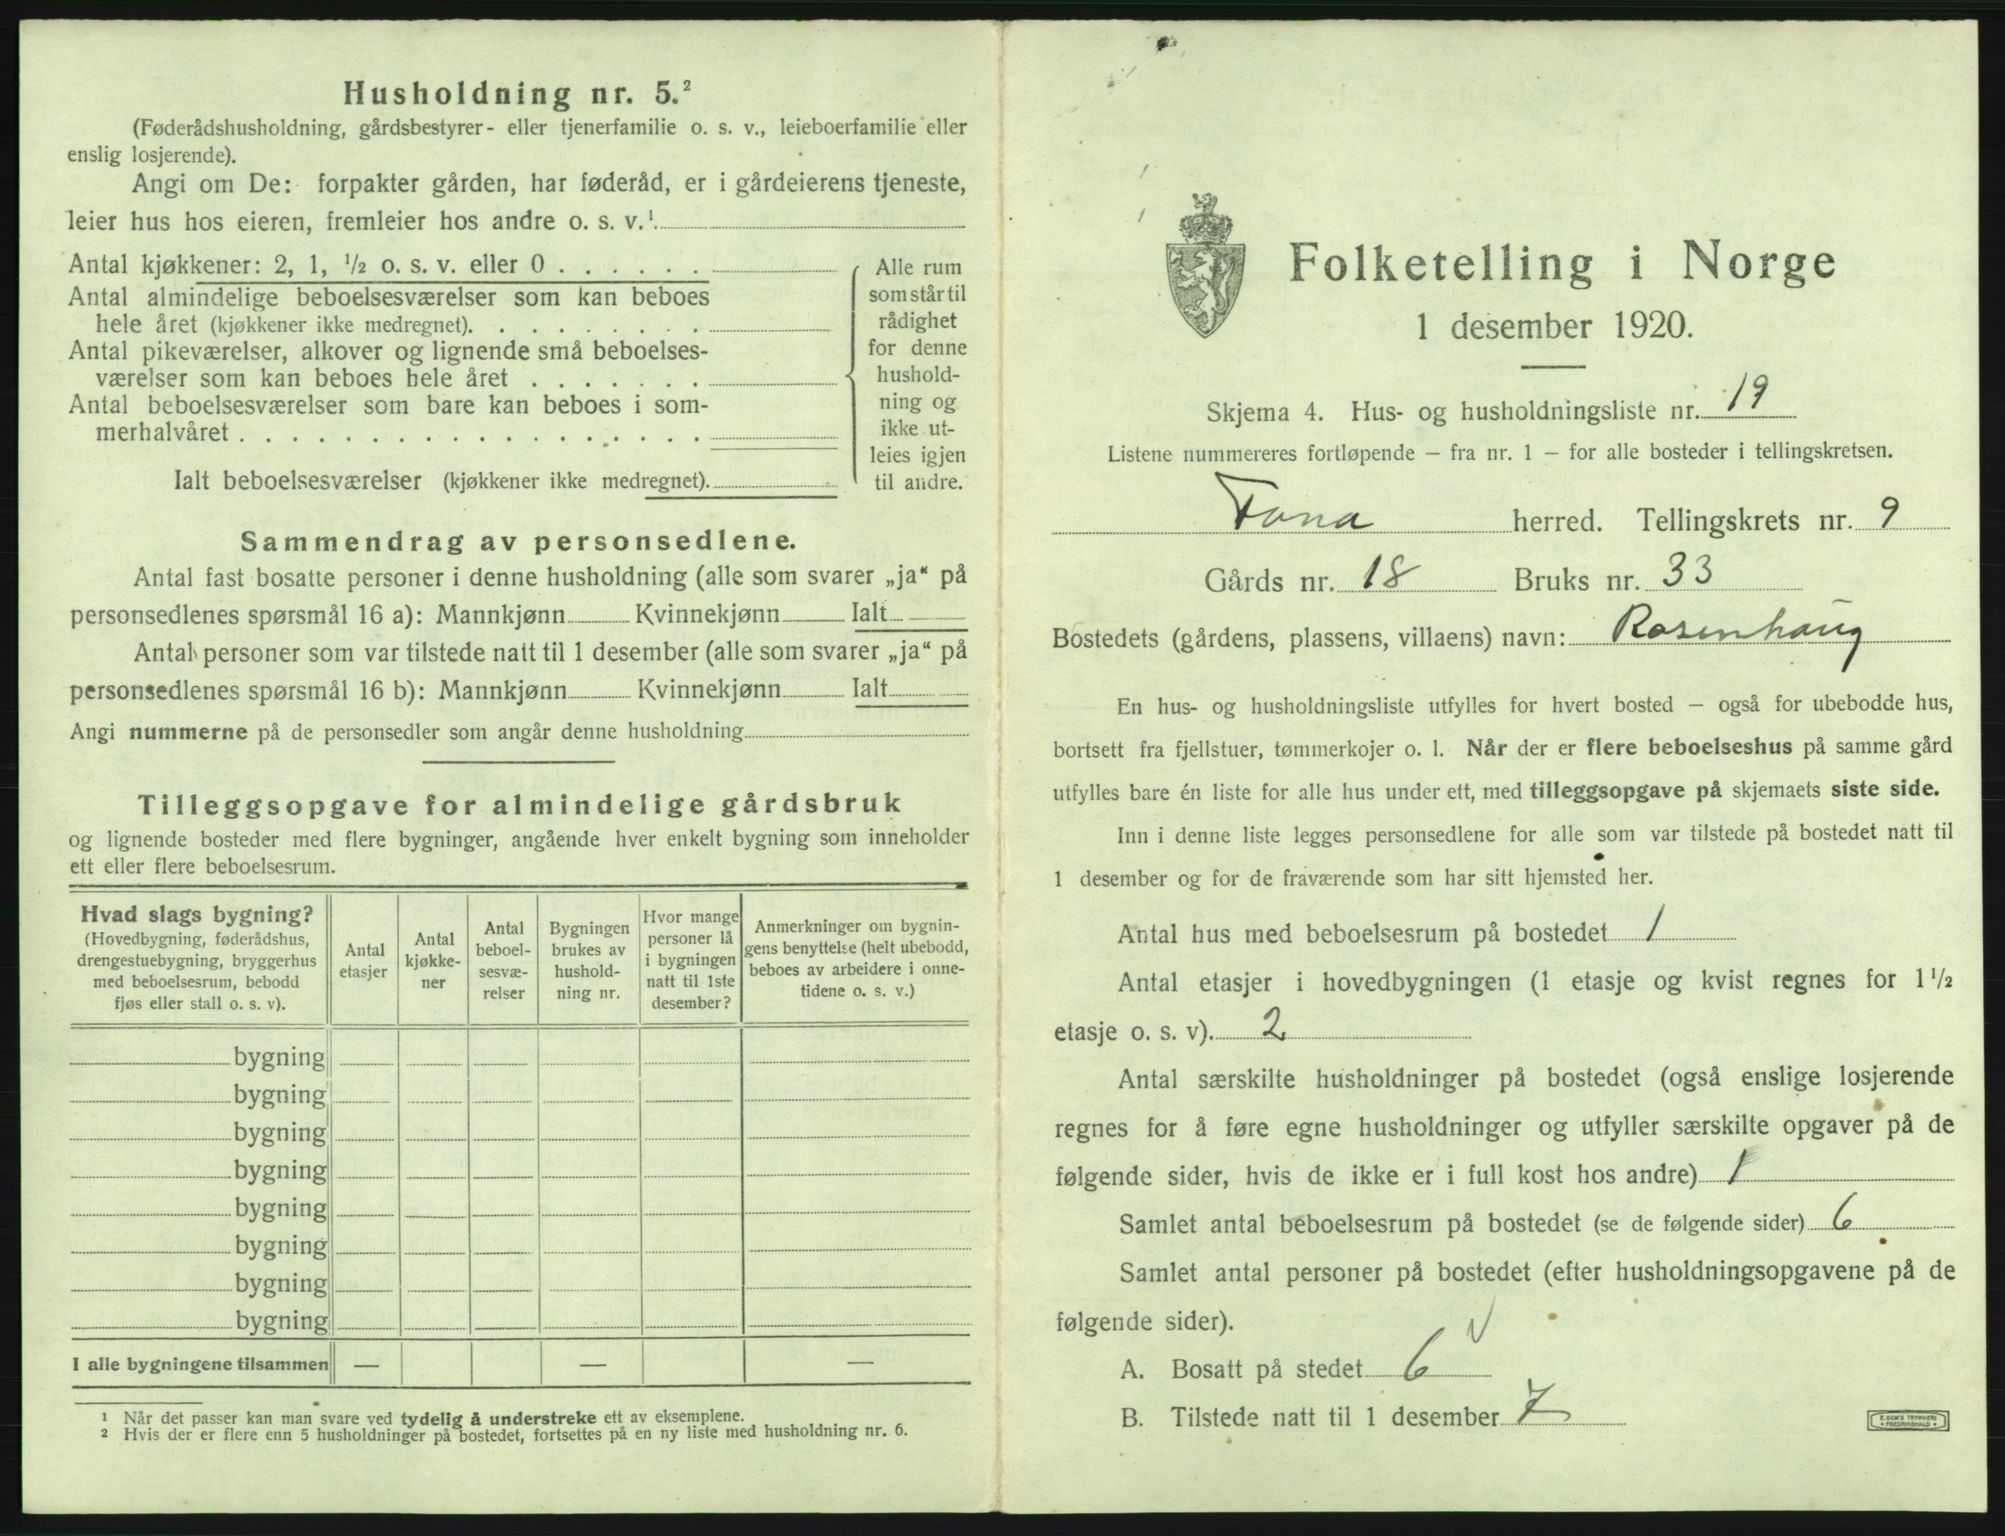 Husholdning nr. 5.²
(Føderådshusholdning, gårdsbestyrer- eller tjenerfamilie o. s. v., leieboerfamilie eller
enslig losjerende).
Angi om De: forpakter gården, har føderåd, er i gårdeierens tjeneste,
leier hus hos eieren, fremleier hos andre o. s. v.¹
Antal kjøkkener: 2, 1, ½ o. s. v. eller 0
Antal almindelige beboelsesværelser som kan beboes
hele året (kjøkkener ikke medregnet).
Antal pikeværelser, alkover og lignende små beboelses-
værelser som kan beboes hele året
Antal beboelsesværelser som bare kan beboes i som-
merhalvåret
Ialt beboelsesværelser (kjøkkener ikke medregnet).
Alle rum
som står til
rådighet
for denne
hushold-
ning og
ikke ut-
leies igjen
til andre.
Sammendrag av personsedlene.
Antal fast bosatte personer i denne husholdning (alle som svarer „ja“ på
personsedlenes spørsmål 16 a): Mannkjønn Kvinnekjønn Ialt
Antal personer som var tilstede natt til 1 desember (alle som svarer „ja“ på
personsedlenes spørsmål 16 b): Mannkjønn Kvinnekjønn Ialt
Angi nummerne på de personsedler som angår denne husholdning
Tilleggsopgave for almindelige gårdsbruk
og lignende bosteder med flere bygninger, angående hver enkelt bygning som inneholder
ett eller flere beboelsesrum.
Hvad slags bygning?
(Hovedbygning, føderådshus,
drengestuebygning, bryggerhus
med beboelsesrum, bebodd
fjøs eller stall o. s. v).
Antal
etasjer
Antal
kjøkke-
ner
Antal
beboel-
sesvæ-
relser
Bygningen
brukes av
hushold-
ning nr.
Hvor mange
personer lå
i bygningen
natt til 1ste
desember?
Anmerkninger om bygnin-
gens benyttelse (helt ubebodd,
beboes av arbeidere i onne-
tidene o. s. v.)
bygning
bygning
bygning
bygning
bygning
bygning
bygning
bygning
I alle bygningene tilsammen — — —
¹ Når det passer kan man svare ved tydelig å understreke ett av eksemplene.
² Hvis der er flere enn 5 husholdninger på bostedet, fortsettes på en ny liste med husholdning nr. 6.
Folketelling i Norge
1 desember 1920.
Skjema 4. Hus- og husholdningsliste nr. 19
Listene nummereres fortløpende — fra nr. 1 — for alle bosteder i tellingskretsen.
Fana herred. Tellingskrets nr. 9
Gårds nr. 18 Bruks nr. 33
Bostedets (gårdens, plassens, villaens) navn: Rosenhaug
En hus- og husholdningsliste utfylles for hvert bosted — også for ubebodde hus,
bortsett fra fjellstuer, tømmerkojer o. l. Når der er flere beboelseshus på samme gård
utfylles bare én liste for alle hus under ett, med tilleggsopgave på skjemaets siste side.
Inn i denne liste legges personsedlene for alle som var tilstede på bostedet natt til
1 desember og for de fraværende som har sitt hjemsted her.
Antal hus med beboelsesrum på bostedet 1
Antal etasjer i hovedbygningen (1 etasje og kvist regnes for 1 ½
etasje o. s. v). 2
Antal særskilte husholdninger på bostedet (også enslige losjerende
regnes for å føre egne husholdninger og utfyller særskilte opgaver på de
følgende sider, hvis de ikke er i full kost hos andre) 1
Samlet antal beboelsesrum på bostedet (se de følgende sider) 6
Samlet antal personer på bostedet (efter husholdningsopgavene på de
følgende sider).
A. Bosatt på stedet 6
B. Tilstede natt til 1 desember 7
E. SEM'S TRYKKERI
FREDRIKSHALD